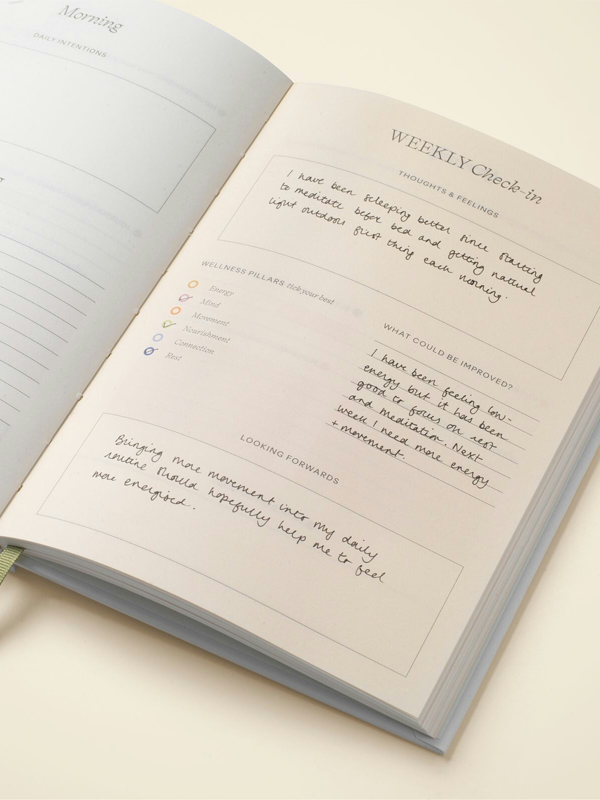 Morning
DAILY INTENTIONS
WEEKLY Check-in
THOUGHTS & FEELINGS
I have been sleeping better since starting
to meditate before bed and getting natural
light outdoors first thing each morning.
WELLNESS PILLARS tick your best
Energy
Mind
Movement
Nourishment
Connection
Rest
WHAT COULD BE IMPROVED?
I have been feeling low-
energy but it has been
good to focus on rest
and meditation. Next
week I need more energy
+ movement.
LOOKING FORWARDS
Bringing more movement into my daily
routine should hopefully help me to feel
more energised.